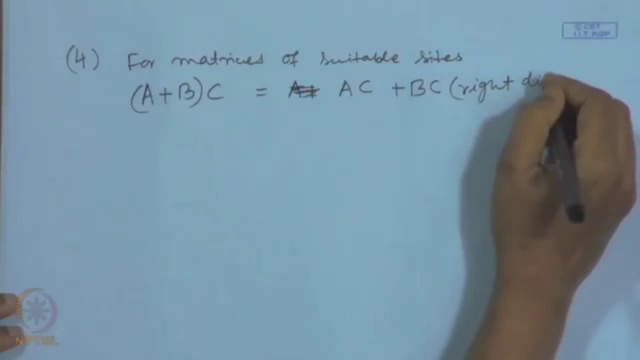 © CET
I.I.T. KGP
(4) For matrices of suitable sites
(A+B)C = AC + BC (right di
NPTEL